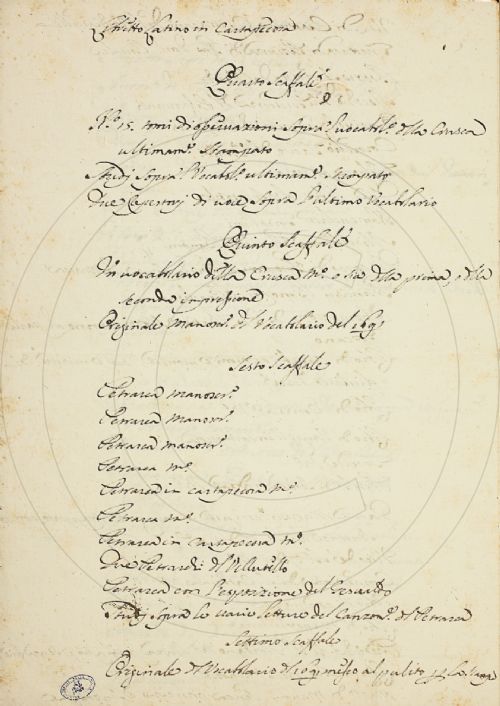 Libretto Latino in Cartapecora
Quarto Scaffale
N.o 15. tomi di osservazioni Sopra il vocabil.o della Crusca
ultimam.e Stampato
Studj Sopra il Vocabil.o ultimam.e Stampato
Due Repertorj di voci Sopra l'ultimo Vocabilario
Quinto Scaffale
Un vocabilario della Crusca m.o o sia della prima, o della
seconda impressione
Originale Manoscr.o del Vocabilario del 1691
Sesto Scaffale
Petrarca Manoscr.o
Petrarca Manoscr.o
Petrarca manoscr.o
Petrarca m.o
Petrarca in cartapecora m.o
Petrarca m.o
Petrarca in cartapecora m.o
Due Petrarchi del Vellutello
Petrarca con l'espositione del Gesualdo
Studj Sopra le varie letture del Canzon.e del Petrarca
Settimo Scaffale
Originale del Vocabilario del 1691 messo al pulito